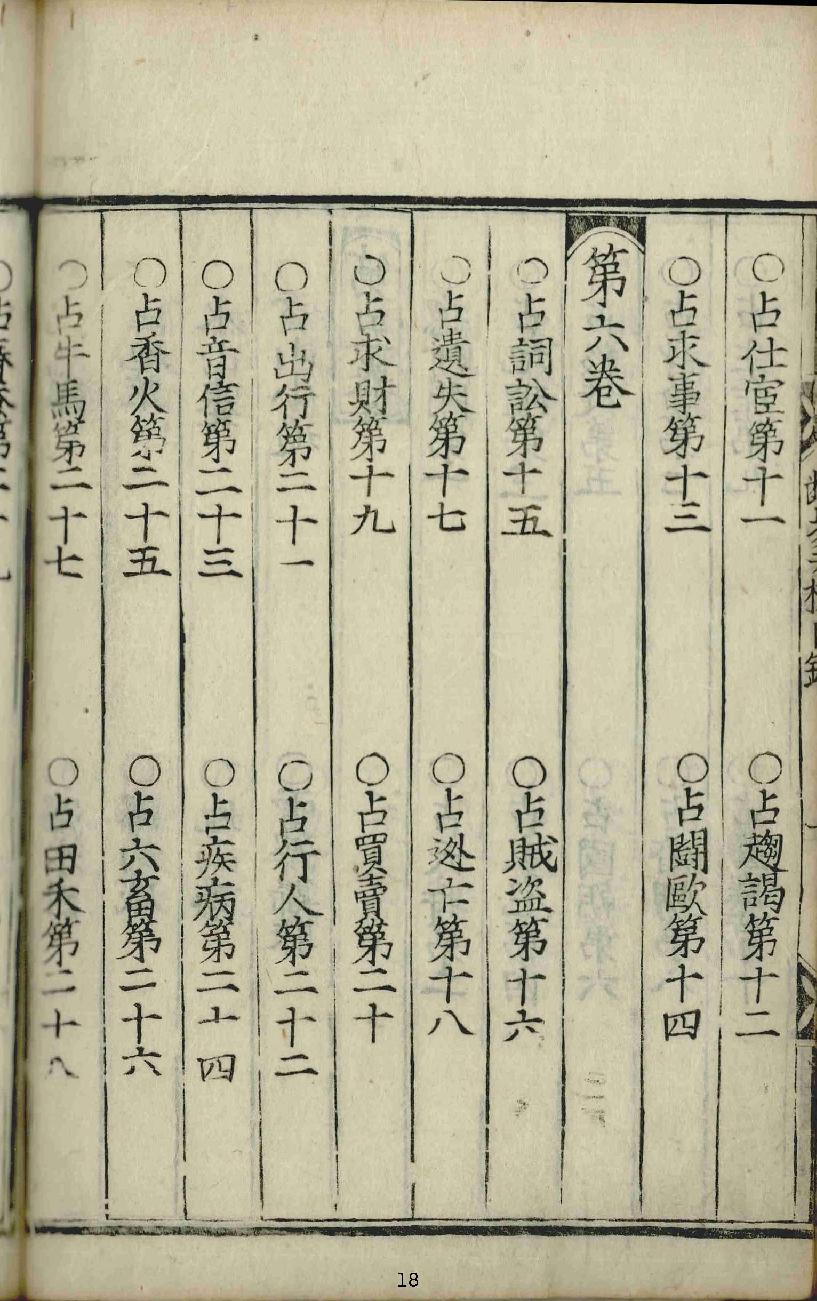 ○占仕宦第十一　○占趨謁第十二
○占求事第十三　○占鬪毆第十四
第六卷
○占詞訟第十五　○占賊盗第十六
○占遺失第十七　○占迯亡第十八
○占求財第十九　○占買賣第二十
○占出行第二十一　○占行人第二十二
○占音信第二十三　○占疾病第二十四
○占香火第二十五　○占六畜第二十六
○占牛馬第二十七　○占田禾第二十八
18